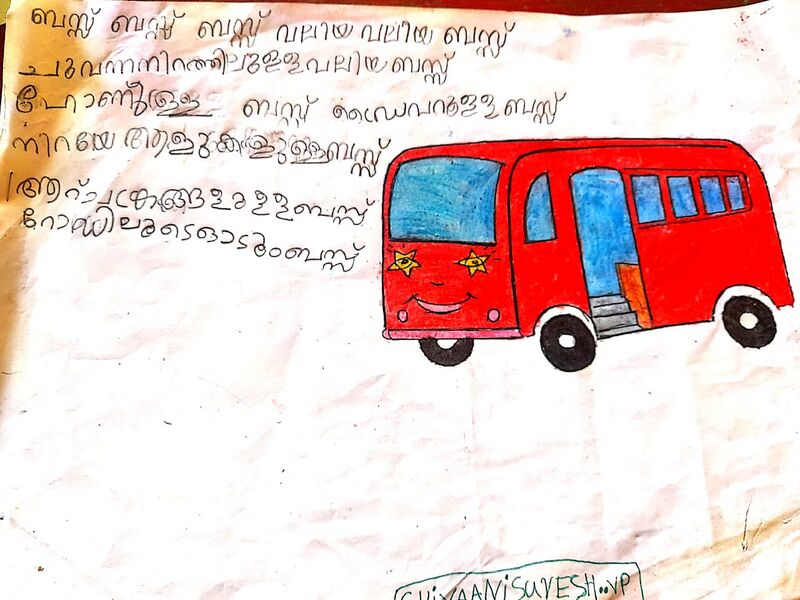 ബസ്സ് ബസ്സ് ബസ്സ് വലിയ വലിയ ബസ്സ്
ചുവന്നനിറത്തിലുള്ള വലിയ ബസ്സ്
ഹോണുള്ള ബസ്സ് ഡ്രൈവറുള്ള ബസ്സ്
നിറയേ ആളുകളുള്ള ബസ്സ്
ആറ് ചക്രങ്ങളുള്ള ബസ്സ്
റോഡിലൂടെ ഓടും ബസ്സ്
SHIVAANI SURESH..VP